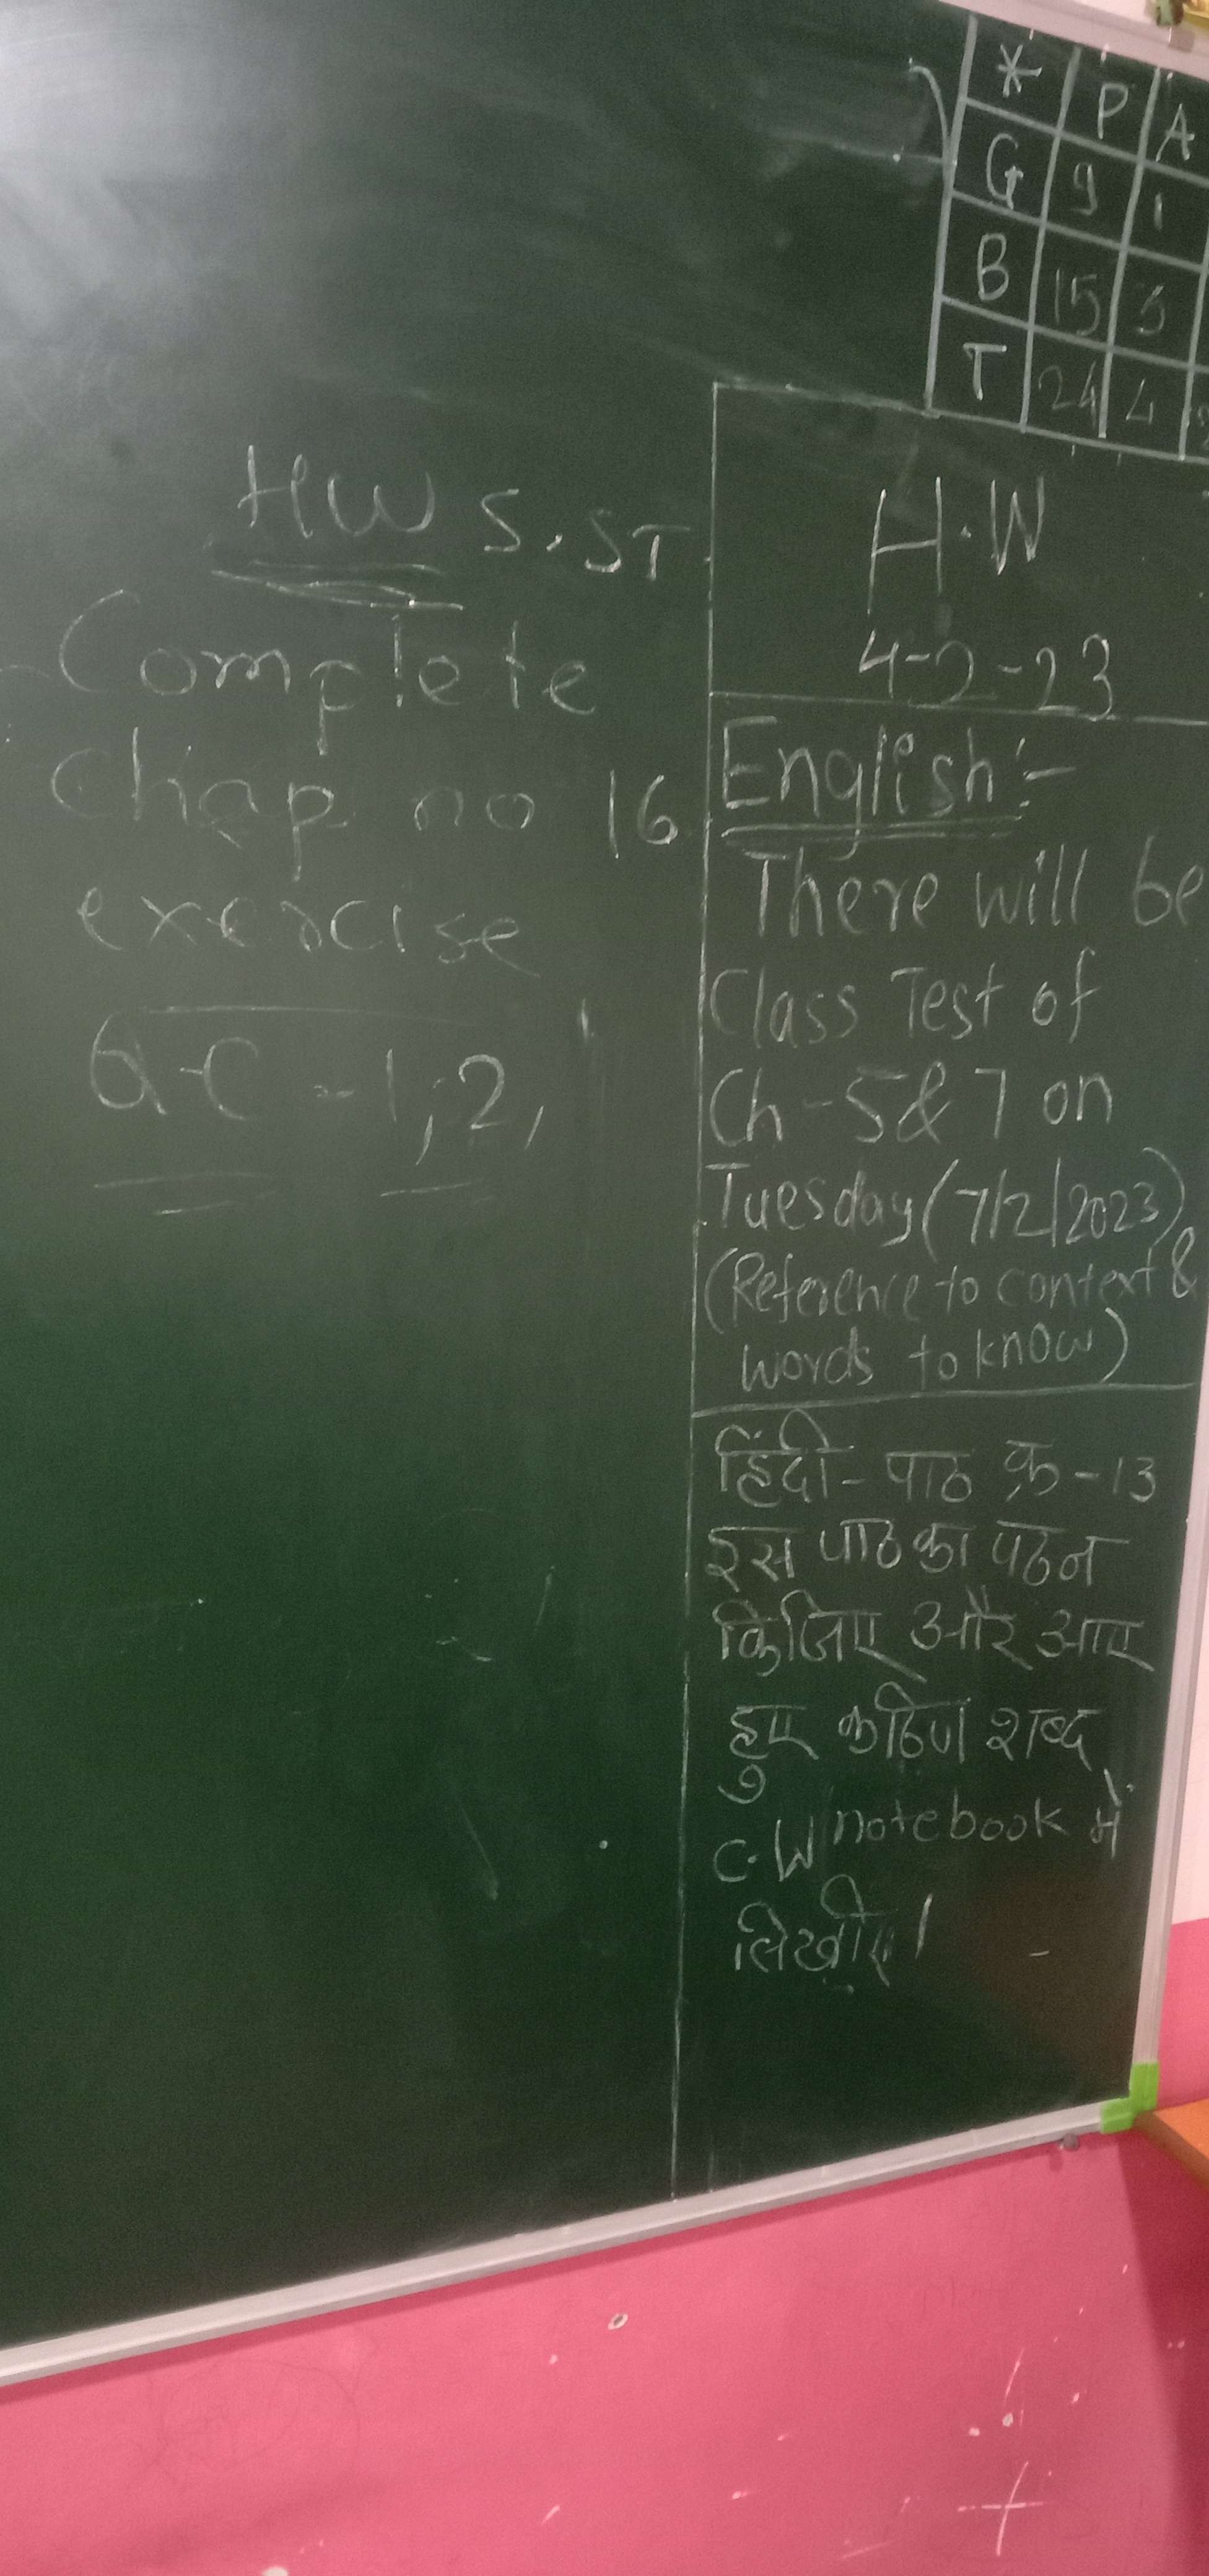 * P A
G 9 1
B 15 3
T 24 4
HW S.ST
Complete
Chap no 16
exercise
Q-C - 1, 2,
H.W
4-2-23
English:-
There will be
Class Test of
Ch-5 & 7 on
Tuesday (7/2/2023)
(Reference to context &
words to know)
हिंदी - पाठ क्र - 13
इस पाठ का पठन
किजिए और आए
हुए कठिण शब्द
C.W notebook में
लिखीए।